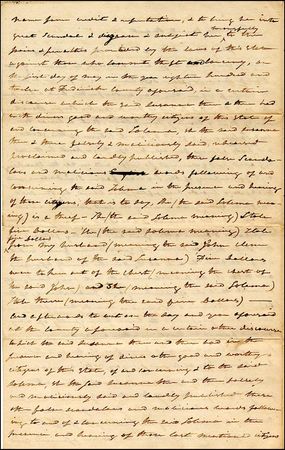 name fame credit & reputation, & to bring her into
great Scandal & disgrace & subject her to the
pains & penalties provided by the laws of this State
against those who commit theft and larceny, on
the first day of May in the year eighteen hundred and
twelve at Frederick county aforesaid, in a certain
discourse which the said Susanna then & there had
with divers good and worthy citizens of this State of
and concerning the said Salome, she the said Susanna
then & there falsely & maliciously said rehearsed
proclaimed and loudly published, these false Scanda
lous and malicious words following of and
concerning the said Salome in the presence and hearing
of those citizens, that is to say, She (the said Salome mean
ing) is a thief. She (the said Salome meaning) Stole
five Dollars. She (the said Salome meaning) Stole
five Dollars
from my husband (meaning the said John
the husband of the said Susanna) Five Dollars
were taken out of the chest (meaning the chest of
the said John) and She (meaning the said Salome)
Stole them (meaning the said five Dollars)
And afterwards to wit on the day and year aforesaid
at the county aforesaid in a certain other discourse
which the said Susanna then and there had in the
presence and hearing of divers other good and worthy
citizens of this State, of and concerning the said
Salome, she the said Susanna then and there falsely
and maliciously said and loudly published these
other false scandalous and malicious words follow
ing to and of & concerning the said Salome in the
presence and hearing of those last mentioned citizens